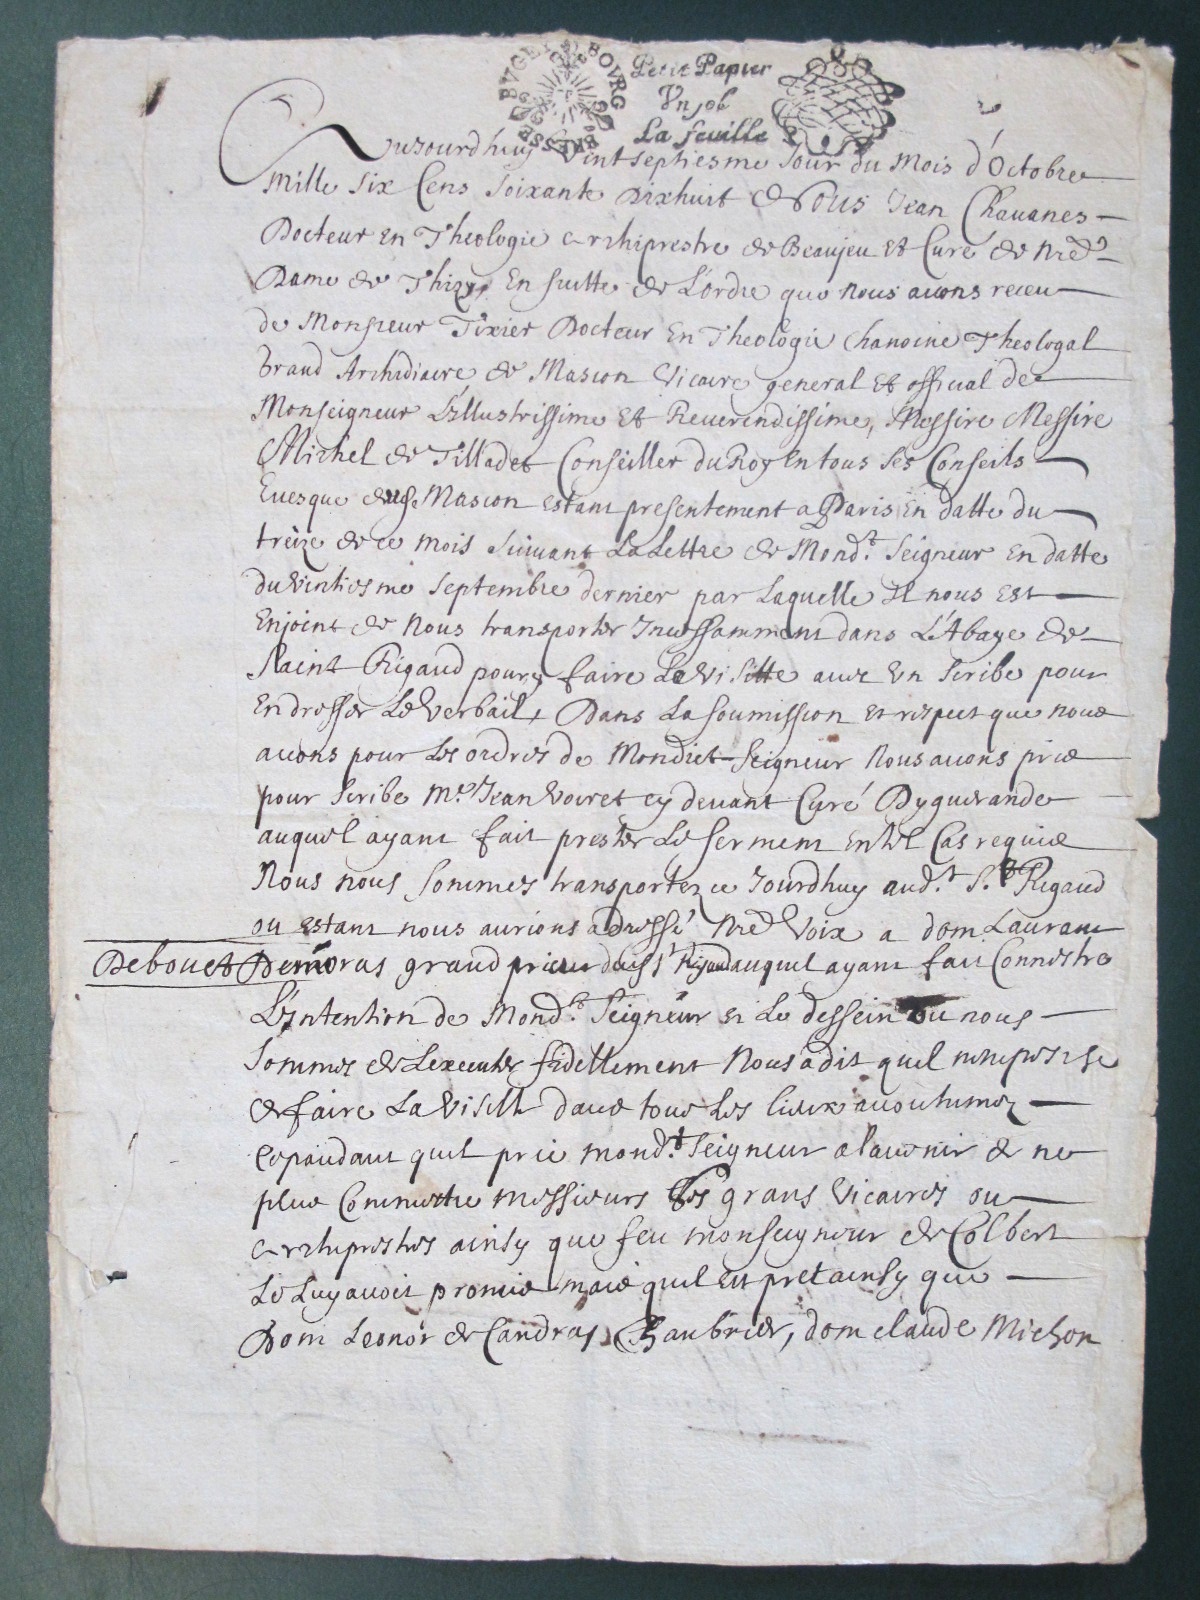 BUGEY BOURG BRESSE
Petit Papier
Un sol
La feuille
Aujourdhuy Vint septiesme Jour du Mois d'Octobre
Mille Six Cens Soixante Dixhuit Nous Jean Chauanes
Docteur En Theologie Archiprestre de Beaujeu Et Curé de Nre
Dame de Thizy En suitte de L'ordre que Nous auons receu
de Monsieur Tixier Docteur En Theologie Chanoine Theologal
Grand Archidiacre de Mascon Vicaire general Et official de
Monseigneur L'Illustrissime Et Reuerendissime, Messire Messire
Michel de Tilladet Conseiller du Roy En tous Ses Conseils
Euesque Mascon estant presentement a Paris En datte du
treize de ce mois Suiuant La Lettre de Mond.t Seigneur En datte
du Vintiesme Septembre dernier par Laquelle Il nous Est
Enjoint de Nous transporter Incessamment dans L'Abaye de
Saint Rigaud pour y faire La Visitte auec Un Scribe pour
En dresser Le Verbail, Dans La soumission Et respect que nous
auons pour Les ordres de Mondict Seigneur Nous auons pris
pour Scribe M.e Jean Voiret cy deuant Curé Dyguerande
auquel ayant fait prester Le serment En tel Cas requis
Nous nous sommes transportez ce Jourdhuy aud.t S.t Rigaud
ou estant nous aurions adressé Nre Voix a dom Laurant
Debouet Demoras grand prieur dud S.t Rigaud auquel ayant fait Connestre
L'Intention de Mond.t Seigneur Et Le dessein ou nous
Sommes de Lexecuter fidellement Nous a dit quil
de faire La Visitte dans tous Les lieux accoutumez
Cepandant quil prie mond.t Seigneur a lauenir de ne
plus Commettre messieurs Ses grans Vicaires ou
Archiprestres ainsy que feu monseigneur de Colbert
Le Luy auoit promis mais quil Est pret ainsy que
Dom Leonor de Candras Chambrier, dom claude Michon